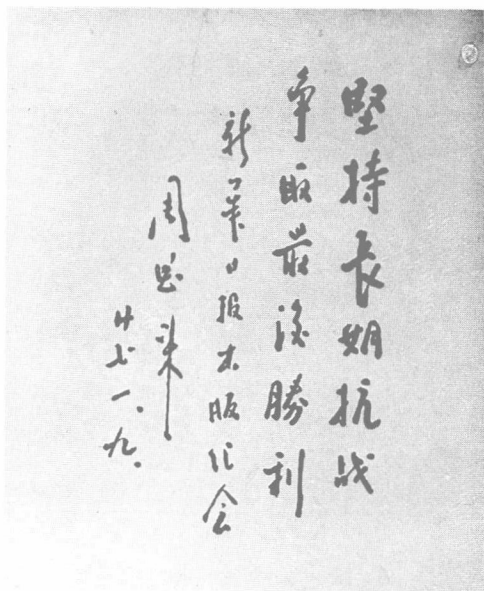 堅持長期抗战
争取最後勝利
新華日报出版纪念
周恩来
廿七、一、九.